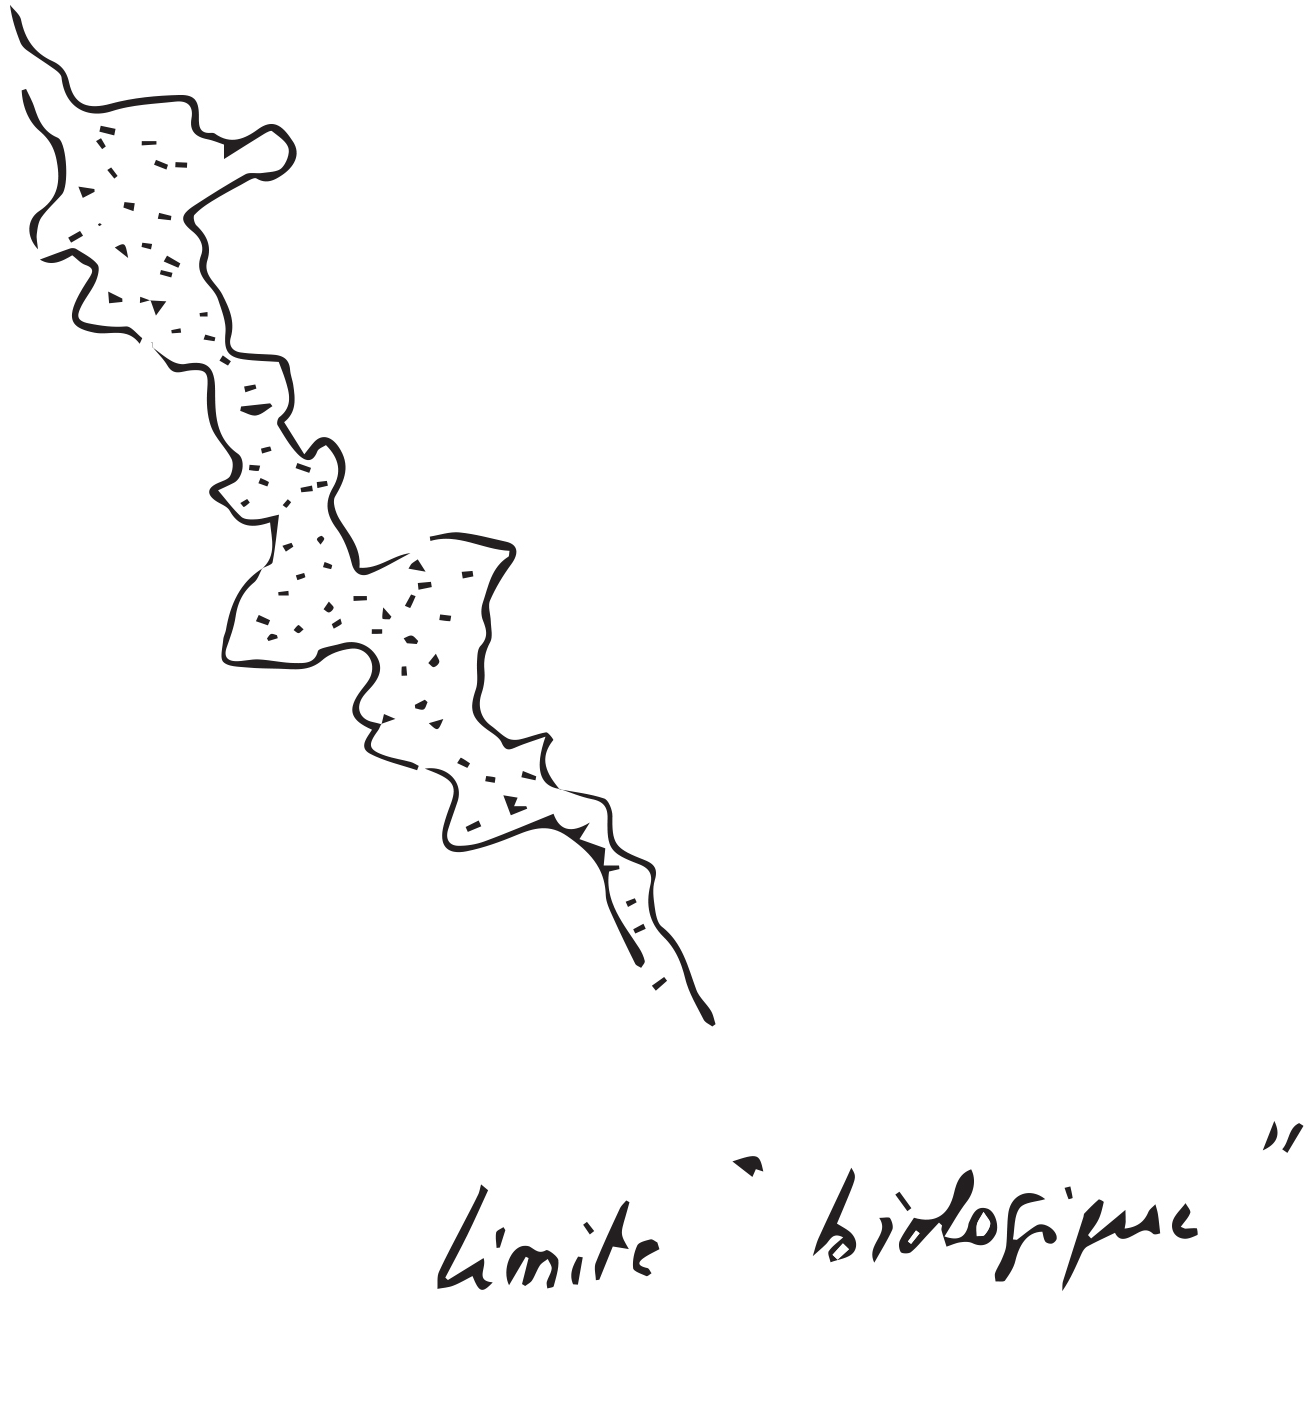 limite "biologique"